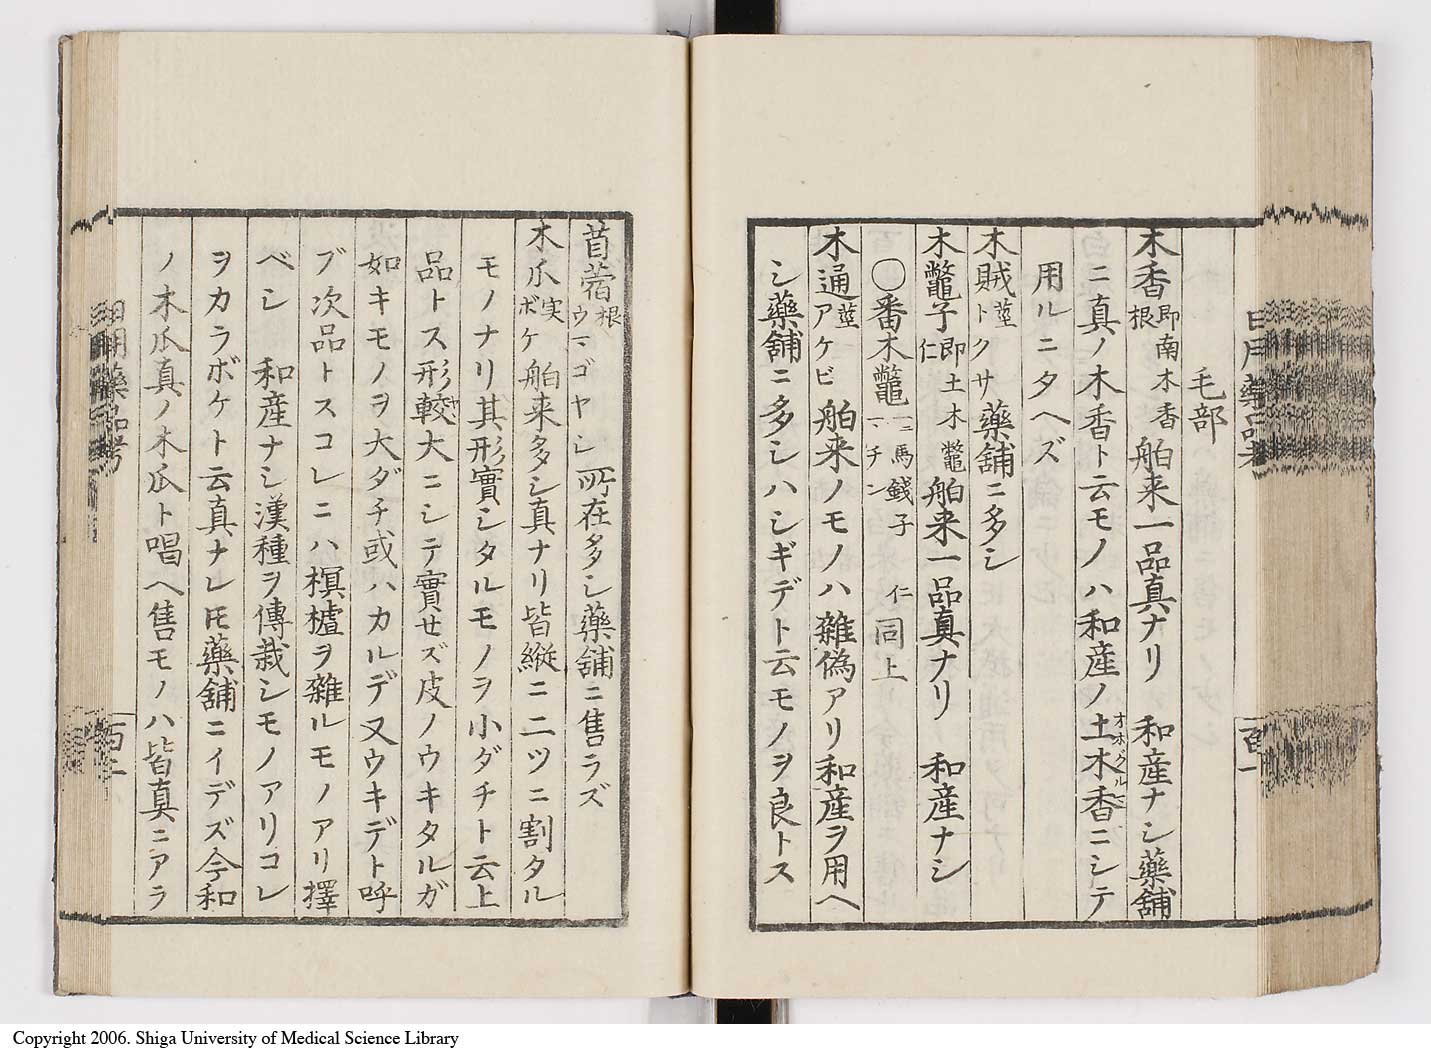 毛部
木香 即南木香根 舶来一品真ナリ 和産ナシ藥舗
ニ真ノ木香ト云モノハ和産ノ土木香オホグルマニシテ
用ルニタヘズ
木賊 莖 トクサ 藥舗ニ多シ
木鼈子 即土木鼈仁 舶来一品真ナリ 和産ナシ
○番木鼈 一ニ馬銭子 マチン 仁 同上
木通 莖 アケビ 舶来ノモノハ雜偽アリ和産ヲ用ヘ
シ藥舗ニ多シハシギデト云モノヲ良トス
日用藥品考
百一
苜蓿 根 ウマゴヤシ 所在多シ藥舗ニ售ラズ
木瓜 実 ボケ 舶来多シ真ナリ皆縦ニ二ツニ割タル
モノナリ其形實シタルモノヲ小ダチト云上
品トス形較大ニシテ實セズ皮ノウキタルガ
如キモノヲ大ダチ或ハカルデ又ウキデト呼
ブ次品トスコレニハ榠樝ヲ雜ルモノアリ擇
ベシ 和産ナシ漢種ヲ傳栽シモノアリコレ
ヲカラボケト云真ナレ𪜈藥舗ニイデズ今和
ノ木瓜真ノ木瓜ト唱ヘ售モノハ皆真ニアラ
日用藥品考
百二
Copyright 2006. Shiga University of Medical Science Library